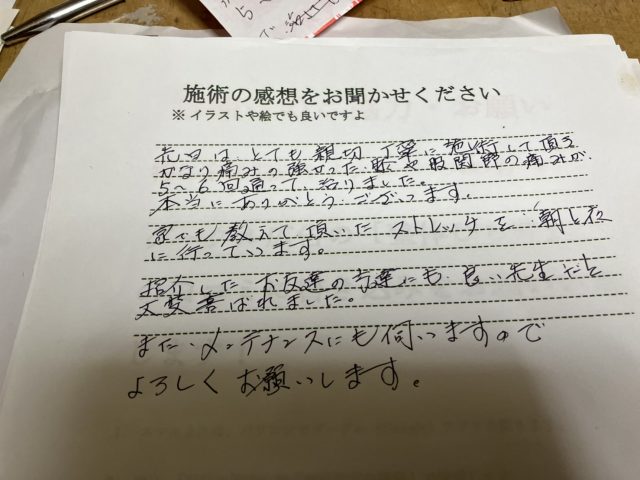 施術の感想をお聞かせください
※イラストや絵でも良いですよ
先日は、とても親切丁寧に施術して頂き
かなり痛みの強かった 股関節の痛みが、
5〜6回通って、治りました。
本当にありがとうございます。
家でも教えて頂いたストレッチを朝と夜
に行っています。
紹介したお友達の 達にも良い先生だと
大変喜ばれました。
また、メンテナンスにも伺いますので
よろしくお願いします。